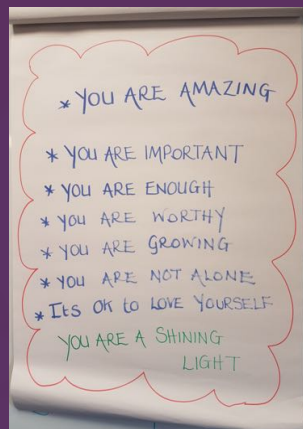 * YOU ARE AMAZING
* YOU ARE IMPORTANT
* YOU ARE ENOUGH
* YOU ARE WORTHY
* YOU ARE GROWING
* YOU ARE NOT ALONE
* ITS OK TO LOVE YOURSELF
YOU ARE A SHINING
LIGHT